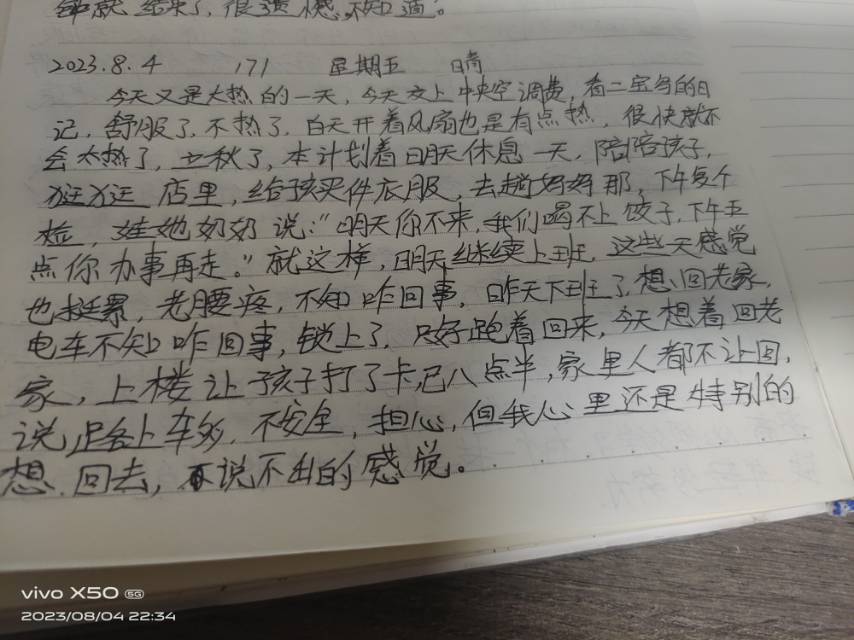 钟就结束了，很遗憾，不知道。
2023.8.4 171 星期五 晴
今天又是大热的一天，今天交上中央空调费，看二宝写的日
记，舒服了，不热了，白天开着风扇也是有点热，很快就不
会太热了，立秋了，本计划着明天休息一天，陪陪孩子，
逛逛店里，给孩买件衣服，去趟妈妈那，下午复个
检，娃她奶奶说："明天你不来，我们喝不上饺子，下午五
点你办事再走。"就这样，明天继续上班，这些天感觉
也挺累，老腰疼，不知咋回事，昨天下班了，想回老家，
电车不知咋回事，锁上了，只好跑着回来，今天想着回老
家，上楼让孩子打了卡，已八点半，家里人都不让回，
说，路上车多，不安全，担心，但我心里还是特别的
想，回去，说不出的感觉。
vivo X50 5G
2023/08/04 22:34